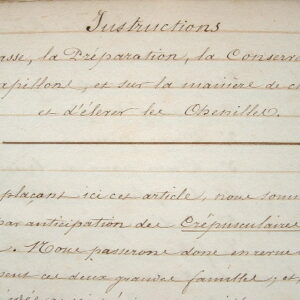 Instructions
asse, la Préparation, la Conserv
apillons, et sur la manière de c
et d'élever les Chenilles.
plaçant ici cet article, nous somm
par anticipation des Crépusculaire
. Nous passerons donc en revue
sent ces deux grandes familles; et